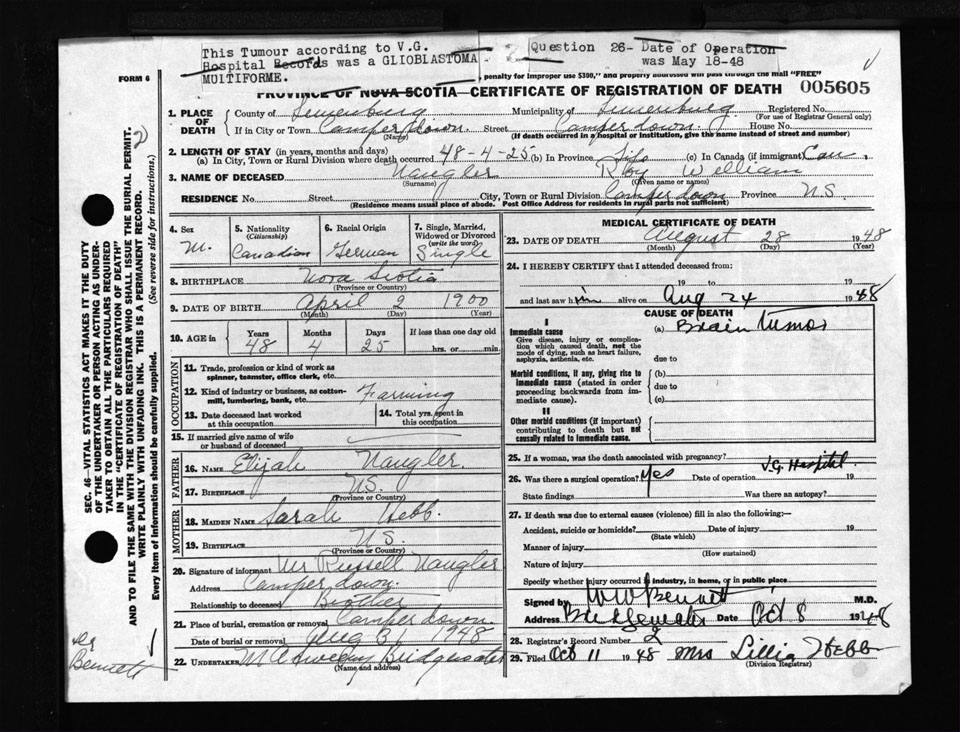 This Tumour according to V.G.
Hospital Records was a GLIOBLASTOMA
MULTIFORME.
Question 26- Date of Operation
was May 18-48
FORM 6
penalty for improper use $300," and property addressed will pass through the mail "FREE"
PROVINCE OF NOVA SCOTIA—CERTIFICATE OF REGISTRATION OF DEATH 005605
1. PLACE OF DEATH
County of Lunenburg Municipality of Lunenburg Registered No.
(For use of Registrar General only)
If in City or Town Camperdown Street Camperdown House No.
(If death occurred in a hospital or institution, give the name instead of street and number)
2. LENGTH OF STAY (in years, months and days)
(a) In City, Town or Rural Division where death occurred 48-4-25 (b) In Province Life (c) In Canada (if immigrant) Can
3. NAME OF DECEASED Naugler Roy William
(Surname) (Given name or names)
RESIDENCE No. Street City, Town or Rural Division Camperdown Province N.S.
(Residence means usual place of abode. Post Office Address for residents in rural parts not sufficient)
4. Sex
M.
5. Nationality
(Citizenship)
Canadian
6. Racial Origin
German
7. Single, Married,
Widowed or Divorced
(write the word)
Single
8. BIRTHPLACE Nova Scotia
(Province or Country)
9. DATE OF BIRTH April 2 1900
(Month) (Day) (Year)
10. AGE in
Years Months Days If less than one day old
48 4 25 hrs. or min.
OCCUPATION
11. Trade, profession or kind of work as
spinner, teamster, office clerk, etc.
12. Kind of industry or business, as cotton-
mill, lumbering, bank, etc. Farming
13. Date deceased last worked
at this occupation
14. Total yrs. spent in
this occupation
15. If married give name of wife
or husband of deceased
FATHER
16. NAME Elijah Naugler.
17. BIRTHPLACE N.S.
(Province or Country)
MOTHER
18. MAIDEN NAME Sarah Hebb.
19. BIRTHPLACE N.S.
(Province or Country)
20. Signature of informant Mr Russell Naugler
Address Camperdown.
Relationship to deceased Brother
21. Place of burial, cremation or removal Camperdown.
Date of burial or removal Aug 31 1948
22. UNDERTAKER Bridgewater
(Name and address)
MEDICAL CERTIFICATE OF DEATH
23. DATE OF DEATH August 28 1948
(Month) (Day) (Year)
24. I HEREBY CERTIFY that I attended deceased from:
19 to 19
and last saw him alive on Aug 24 1948
CAUSE OF DEATH
I
Immediate cause
Give disease, injury or complica-
tion which caused death, not the
mode of dying, such as heart failure,
asphyxia, asthenia, etc.
(a) Brain tumor
due to
Morbid conditions, if any, giving rise to
immediate cause (stated in order
proceeding backwards from im-
mediate cause).
(b)
due to
(c)
II
Other morbid conditions (if important)
contributing to death but not
causally related to immediate cause.
25. If a woman, was the death associated with pregnancy?
V.G. Hospital
26. Was there a surgical operation? Yes Date of operation 19
State findings Was there an autopsy?
27. If death was due to external causes (violence) fill in also the following:—
Accident, suicide or homicide? Date of injury 19
(State which)
Manner of injury
(How sustained)
Nature of injury
Specify whether injury occurred in industry, in home, or in public place
Signed by W W Bennett M.D.
Address Bridgewater Date Oct 8 1948
28. Registrar's Record Number 2
29. Filed Oct 11 1948 Mrs Lillia Hebb
(Division Registrar)
SEC. 46—VITAL STATISTICS ACT MAKES IT THE DUTY
OF THE UNDERTAKER OR PERSON ACTING AS UNDER-
TAKER TO OBTAIN ALL THE PARTICULARS REQUIRED
IN THE "CERTIFICATE OF REGISTRATION OF DEATH"
AND TO FILE THE SAME WITH THE DIVISION REGISTRAR WHO SHALL ISSUE THE BURIAL PERMIT.
WRITE PLAINLY WITH UNFADING INK. THIS IS A PERMANENT RECORD.
Every item of information should be carefully supplied. (See reverse side for instructions.)
Dr
Bennett